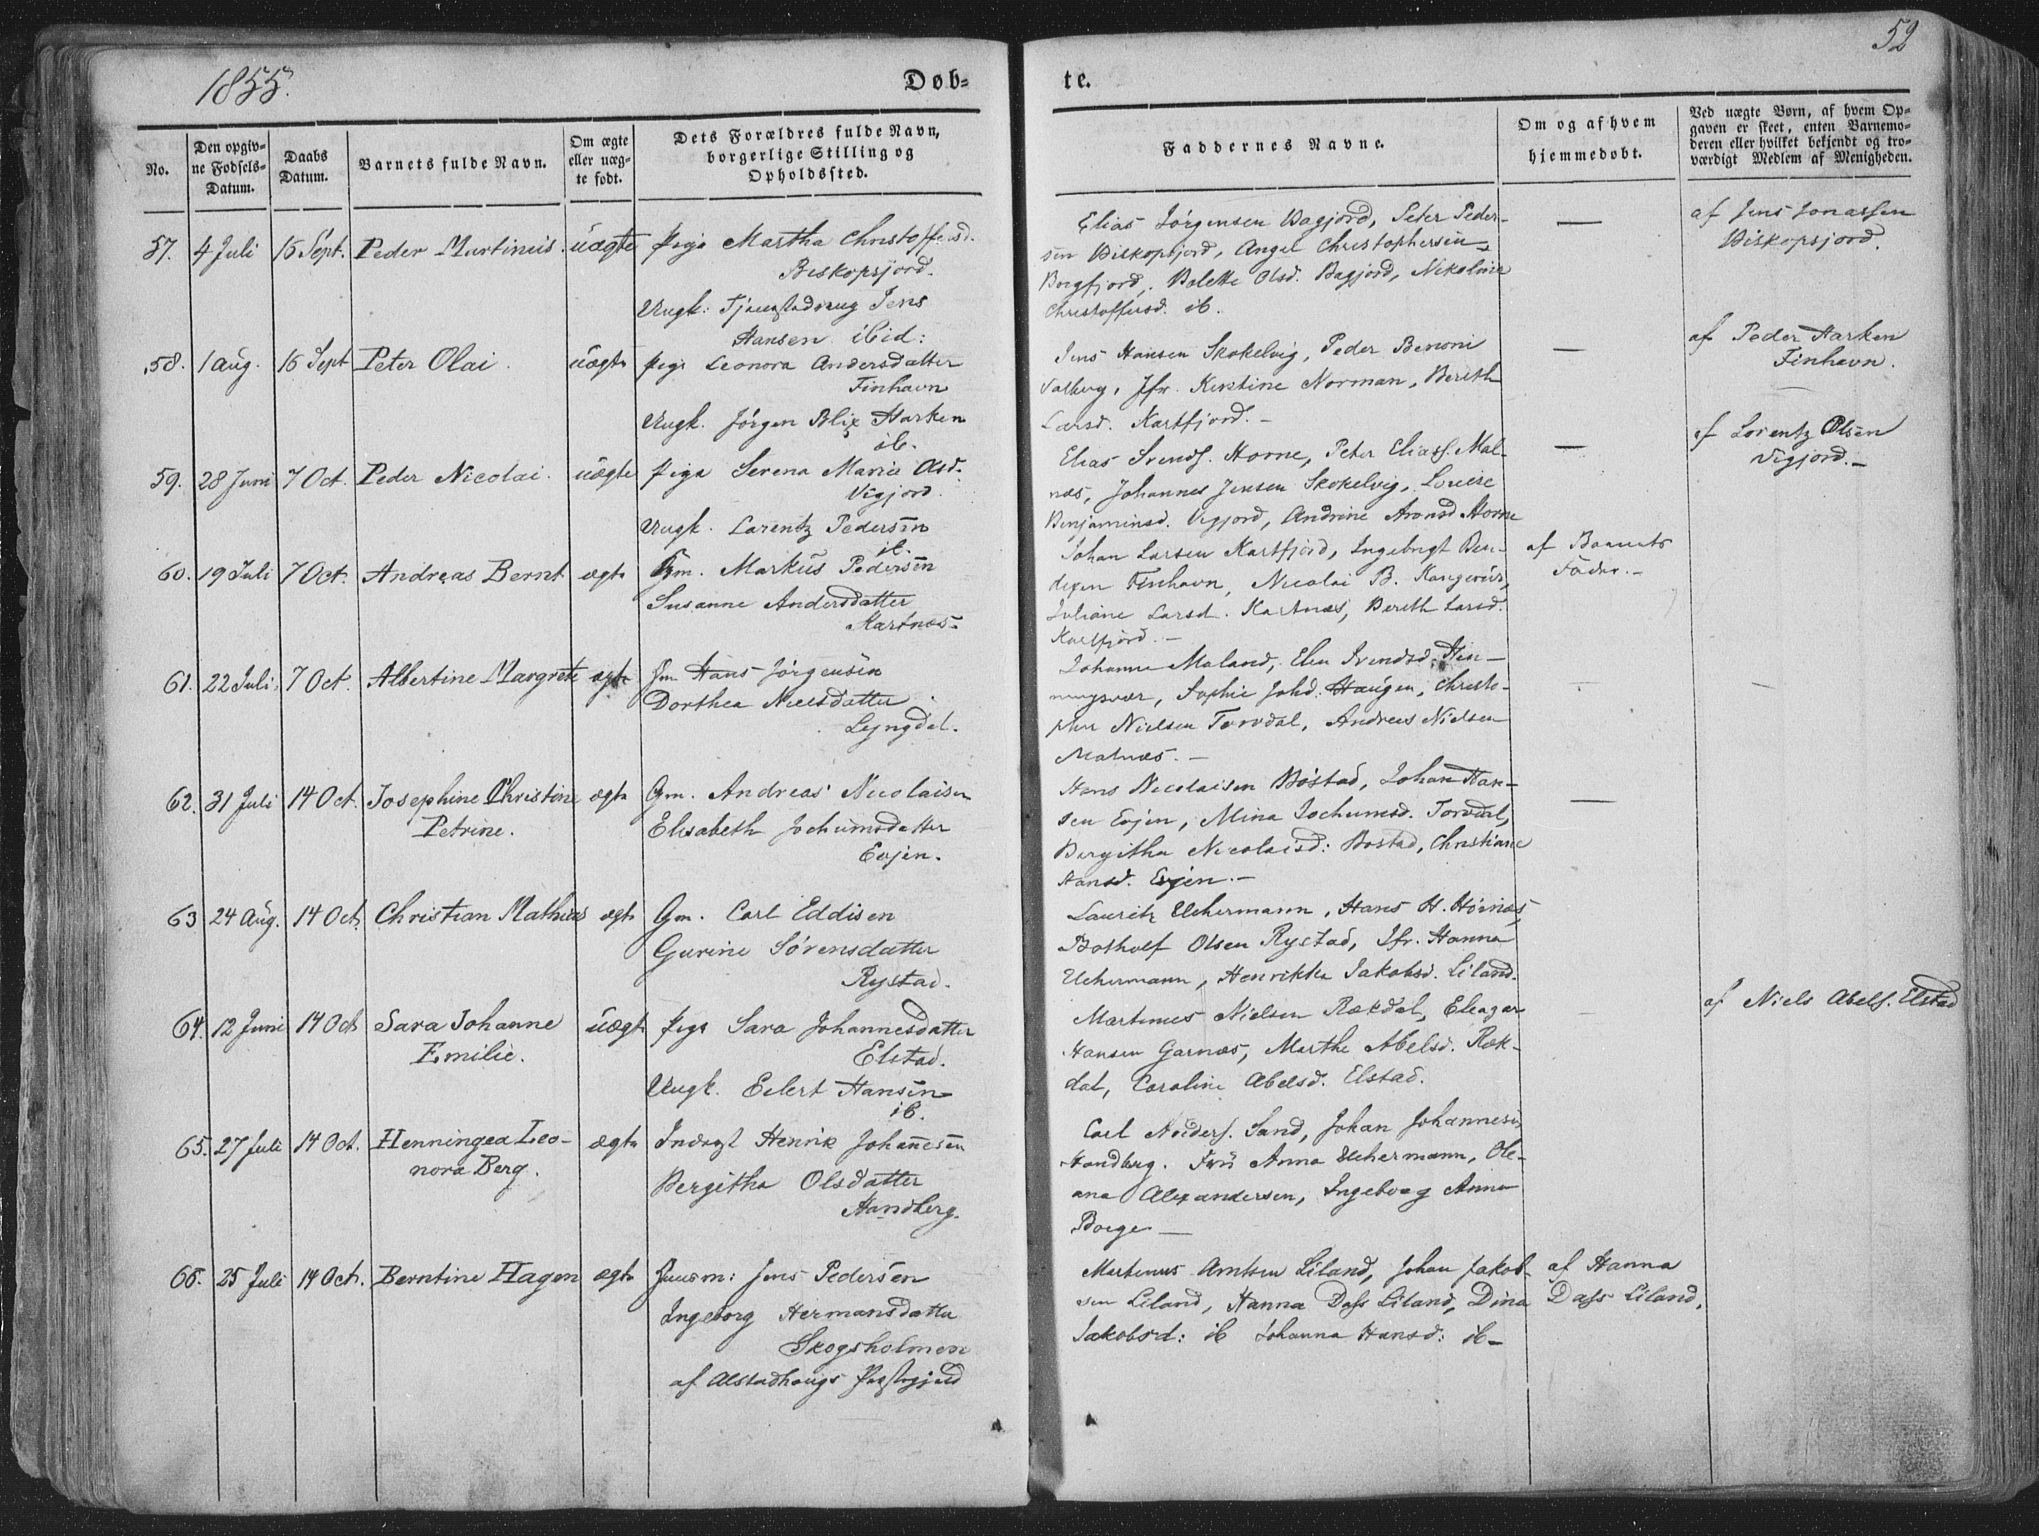 1855.
Døb-
te.
52
No.
Den opgiv-
ne Fødsels-
Datum.
Daabs
Datum.
Barnets fulde Navn.
Om ægte
eller uæg-
te født.
Dets Forældres fulde Navn,
borgerlige Stilling og
Opholdssted.
Faddernes Navne.
Om og af hvem
hjemmedøbt.
Ved uægte Børn, af hvem Op-
gaven er skeet, enten Barnemo-
deren eller hvilket bekjendt og tro-
værdigt Medlem af Menigheden.
57. 4 Juli 16 Sept. Peder Martinus. uægte Pige Martha Christoffersd.
Biskopsjord.
Ungk: Jens
Hansen ibid:
Elias Jörgensen Bagjord, Peter Peder-
sen Biskopsjord, Angel Christophersen
Bolette Olsd. Bagjord, Nikoline
Christoffersd. ib.
—
af Jens Jonassen
Biskopsjord.
58. 1 Aug. 16 Sept Peter Olai. uægte Pige Leonora Andersdatter
Finhavn
Ungk. Jörgen Blix Harken
ib.
Jens Hansen Skokelvig, Peder Benoni
Valberg, Jfr. Kirstine Norman, Bereth
Larsd. Kartfjord. —
—
af Peder Harken
Finhavn.
59. 28 Juni 7 Oct. Peder Nicolai. uægte Pige Serena Maria Olsd.
Vigjord.
Ungk. Lorentz Pedersen
ib.
Elias Svends. Horne, Peter Eliass. Mal-
næs, Johannes Jensen Skokelvig, Lovise
Benjaminsd. Vigjord, Andrine Aronsd Horne
—
af Lorentz Olsen
Vigjord. —
60. 19 Juli 7 Oct. Andreas Bernt ægte Gm. Markus Pedersen
Susanne Andersdatter
Kartnæs.
Johan Larsen Kartfjord, Ingebrigt Ben-
dixen Finhavn, Nicolai B.
Juliane Larsd. Kartnæs, Bereth Larsd.
Kartfjord. —
af Barnets
Fader. —
61. 22 Juli 7 Oct. Albertine Margrete ægte Gm Hans Jörgensen
Dorthea Nielsdatter
Lyngdal.
Johanne Maland, Elen Svendsd. Hen-
ningsvær, Sophie Johd. Haugen, Christo-
pher Nielsen Torvdal, Andreas Nielsen
Malnæs. —
—
—
62. 31 Juli 14 Oct. Josephine Christine ægte Gm. Andreas Nicolaisen
Petrine.
Elisabeth Jochumsdatter
Evjen.
Hans Nicolaisen Böstad, Johan Han-
sen Evjen, Mina Jochumsd. Torvdal,
Bergitha Nicolaisd: Bostad, Christiane
Hansd. Evjen. —
—
63 24 Aug. 14 Oct. Christian Mathias ægte Gm. Carl Eddisen
Gurine Sörensdatter
Rystad.
Lauritz Uchermann, Hans H. Höinæs,
Botholf Olsen Rystad, Jfr. Hanna
Uchermann, Henrikke Jakobsd. Liland.
64. 12 Juni 14 Oct Sara Johanne uægte Pige Sara Johannesdatter
Emilie.
Elstad.
Ungk. Eilert Hansen
ib.
Martinus Nielsen Rækdal, Eleazar
Hansen Garnæs, Marthe Abelsd. Ræk-
dal, Caroline Abelsd. Elstad.
—
af Niels Abels. Elstad
65. 27 Juli 14 Oct. Henningea Leo- ægte Henrik Johannesen
nora Berg.
Bergitha Olsdatter
Handberg.
Carl Sand, Johan Johannesen
Handberg. Fru Anna Uchermann, Ole-
ana Alexandersen, Ingeborg Anna
Borge —
66. 25 Juli 14 Oct. Berntine Hagen ægte Huusm: Jens Pedersen
Ingeborg Hermansdatter
Skogsholmen
af Alstadhougs Præstegjeld
Martinus Arntsen Liland, Johan Jakob-
sen Liland, Hanna Dass Liland, Dina
Jakobsd: ib Johanna Hansd: ib —
af Hanna
Dass Liland.